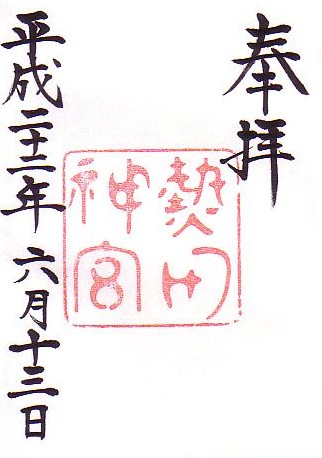 奉拝
熱田神宮
平成二十二年六月十三日